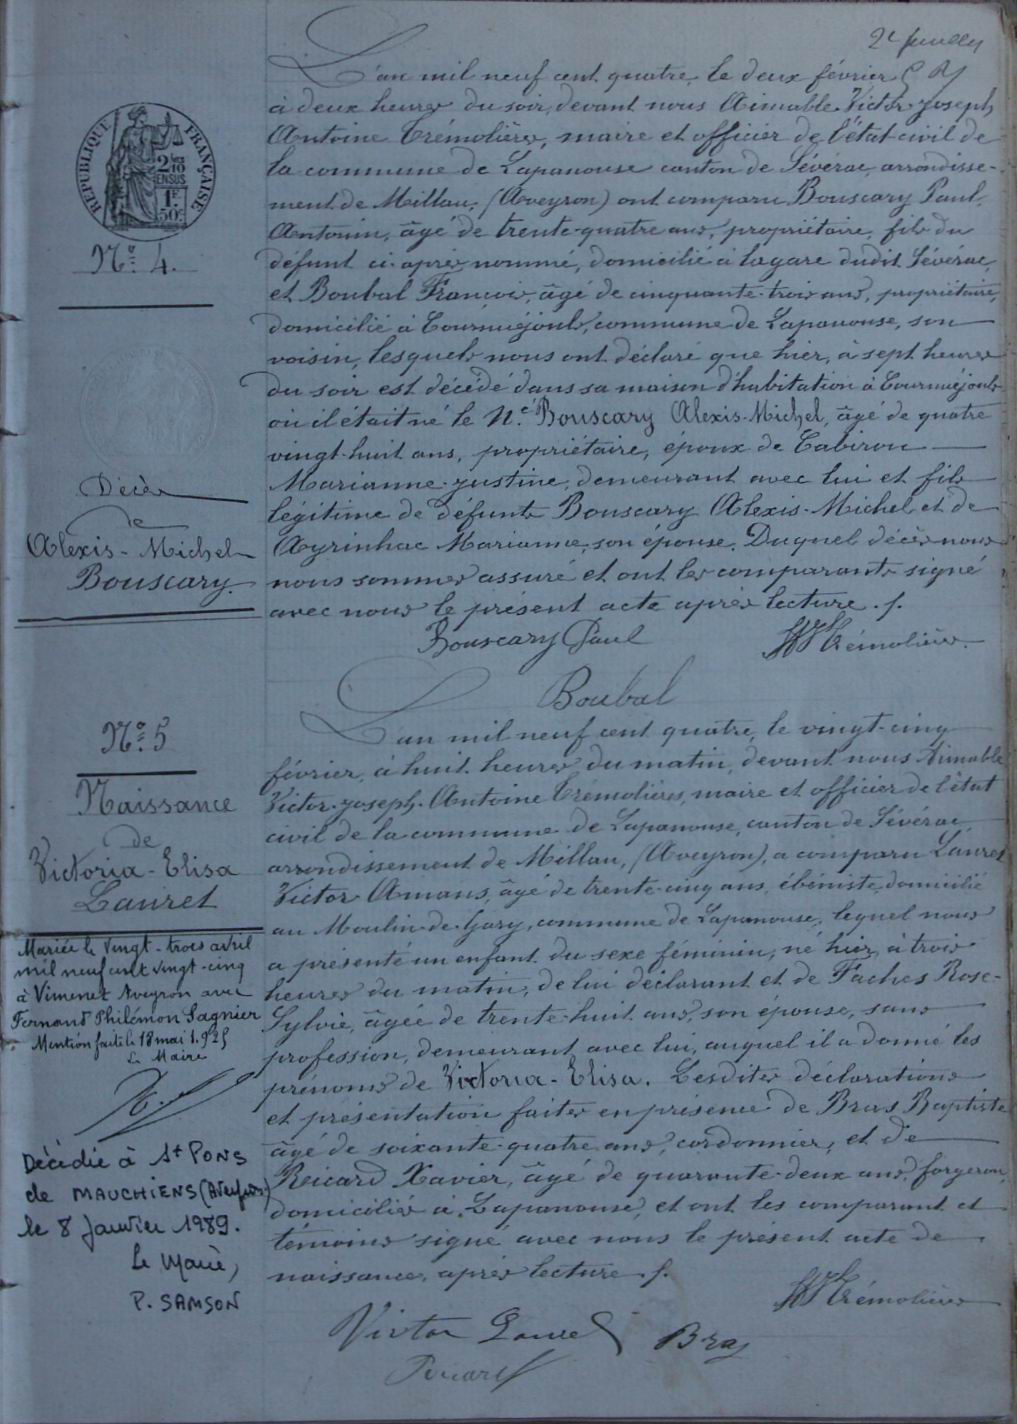 2e feuillet
L'an mil neuf cent quatre, le deux février
à deux heures du soir, devant nous Aimable Victor Joseph
Antoine Trémolières, maire et officier de l'état civil de
la commune de Lapanouse canton de Sévérac, arrondisse-
ment de Millau, (Aveyron) ont comparu Bouscary Paul
Antonin, âgé de trente-quatre ans, propriétaire, fils du
défunt ci-après nommé, domicilié à la gare dudit Sévérac,
et Boubal François, âgé de cinquante-trois ans, propriétaire,
domicilié à Tourmiéjouls, commune de Lapanouse, son
voisin, lesquels nous ont déclaré que hier, à sept heures
du soir est décédé dans sa maison d'habitation à Tourmiéjouls
où il était né le N.é Bouscary Alexis-Michel, âgé de quatre
vingt-huit ans, propriétaire, époux de Cabiron
Marianne-Justine, demeurant avec lui et fils
légitime de défunts Bouscary Alexis-Michel et de
Ayrinhac Marianne, son épouse. Duquel décès nous
nous sommes assuré et ont les comparants signé
avec nous le présent acte après lecture ./.
Bouscary Paul
Trémolières
Boubal
RÉPUBLIQUE FRANÇAISE
2/10 EN SUS
1F 50c
No. 4.
Décès
de
Alexis-Michel
Bouscary.
No. 5
Naissance
de
Victoria-Elisa
Lauret
Mariée le vingt-trois avril
mil neuf cent vingt-cinq
à Vimenet Aveyron avec
Fernand Philémon Sagnier
Mention faite le 18 mai 1925
Le Maire
Décédée à St PONS
de MAUCHIENS (Aveyron)
le 8 Janvier 1989.
Le Maire,
P. SAMSON
L'an mil neuf cent quatre, le vingt-cinq
février, à huit heures du matin, devant nous Aimable
Victor-Joseph-Antoine Trémolières, maire et officier de l'état
civil de la commune de Lapanouse, canton de Sévérac
arrondissement de Millau, (Aveyron), a comparu Lauret
Victor Amans, âgé de trente-cinq ans, ébéniste, domicilié
au Moulin-de-Gary, commune de Lapanouse, lequel nous
a présenté un enfant du sexe féminin, né hier, à trois
heures du matin, de lui déclarant et de Faches Rose-
Sylvie, âgée de trente-huit ans, son épouse, sans
profession, demeurant avec lui, auquel il a donné les
prénoms de Victoria-Elisa. Lesdites déclarations
et présentation faites en présence de Bras Baptiste
âgé de soixante-quatre ans, cordonnier, et de
Reicard Xavier, âgé de quarante-deux ans, forgeron,
domiciliés à Lapanouse, et ont les comparant et
témoins signé avec nous le présent acte de
naissance, après lecture ./.
Trémolières
Victor Lauret
Bras